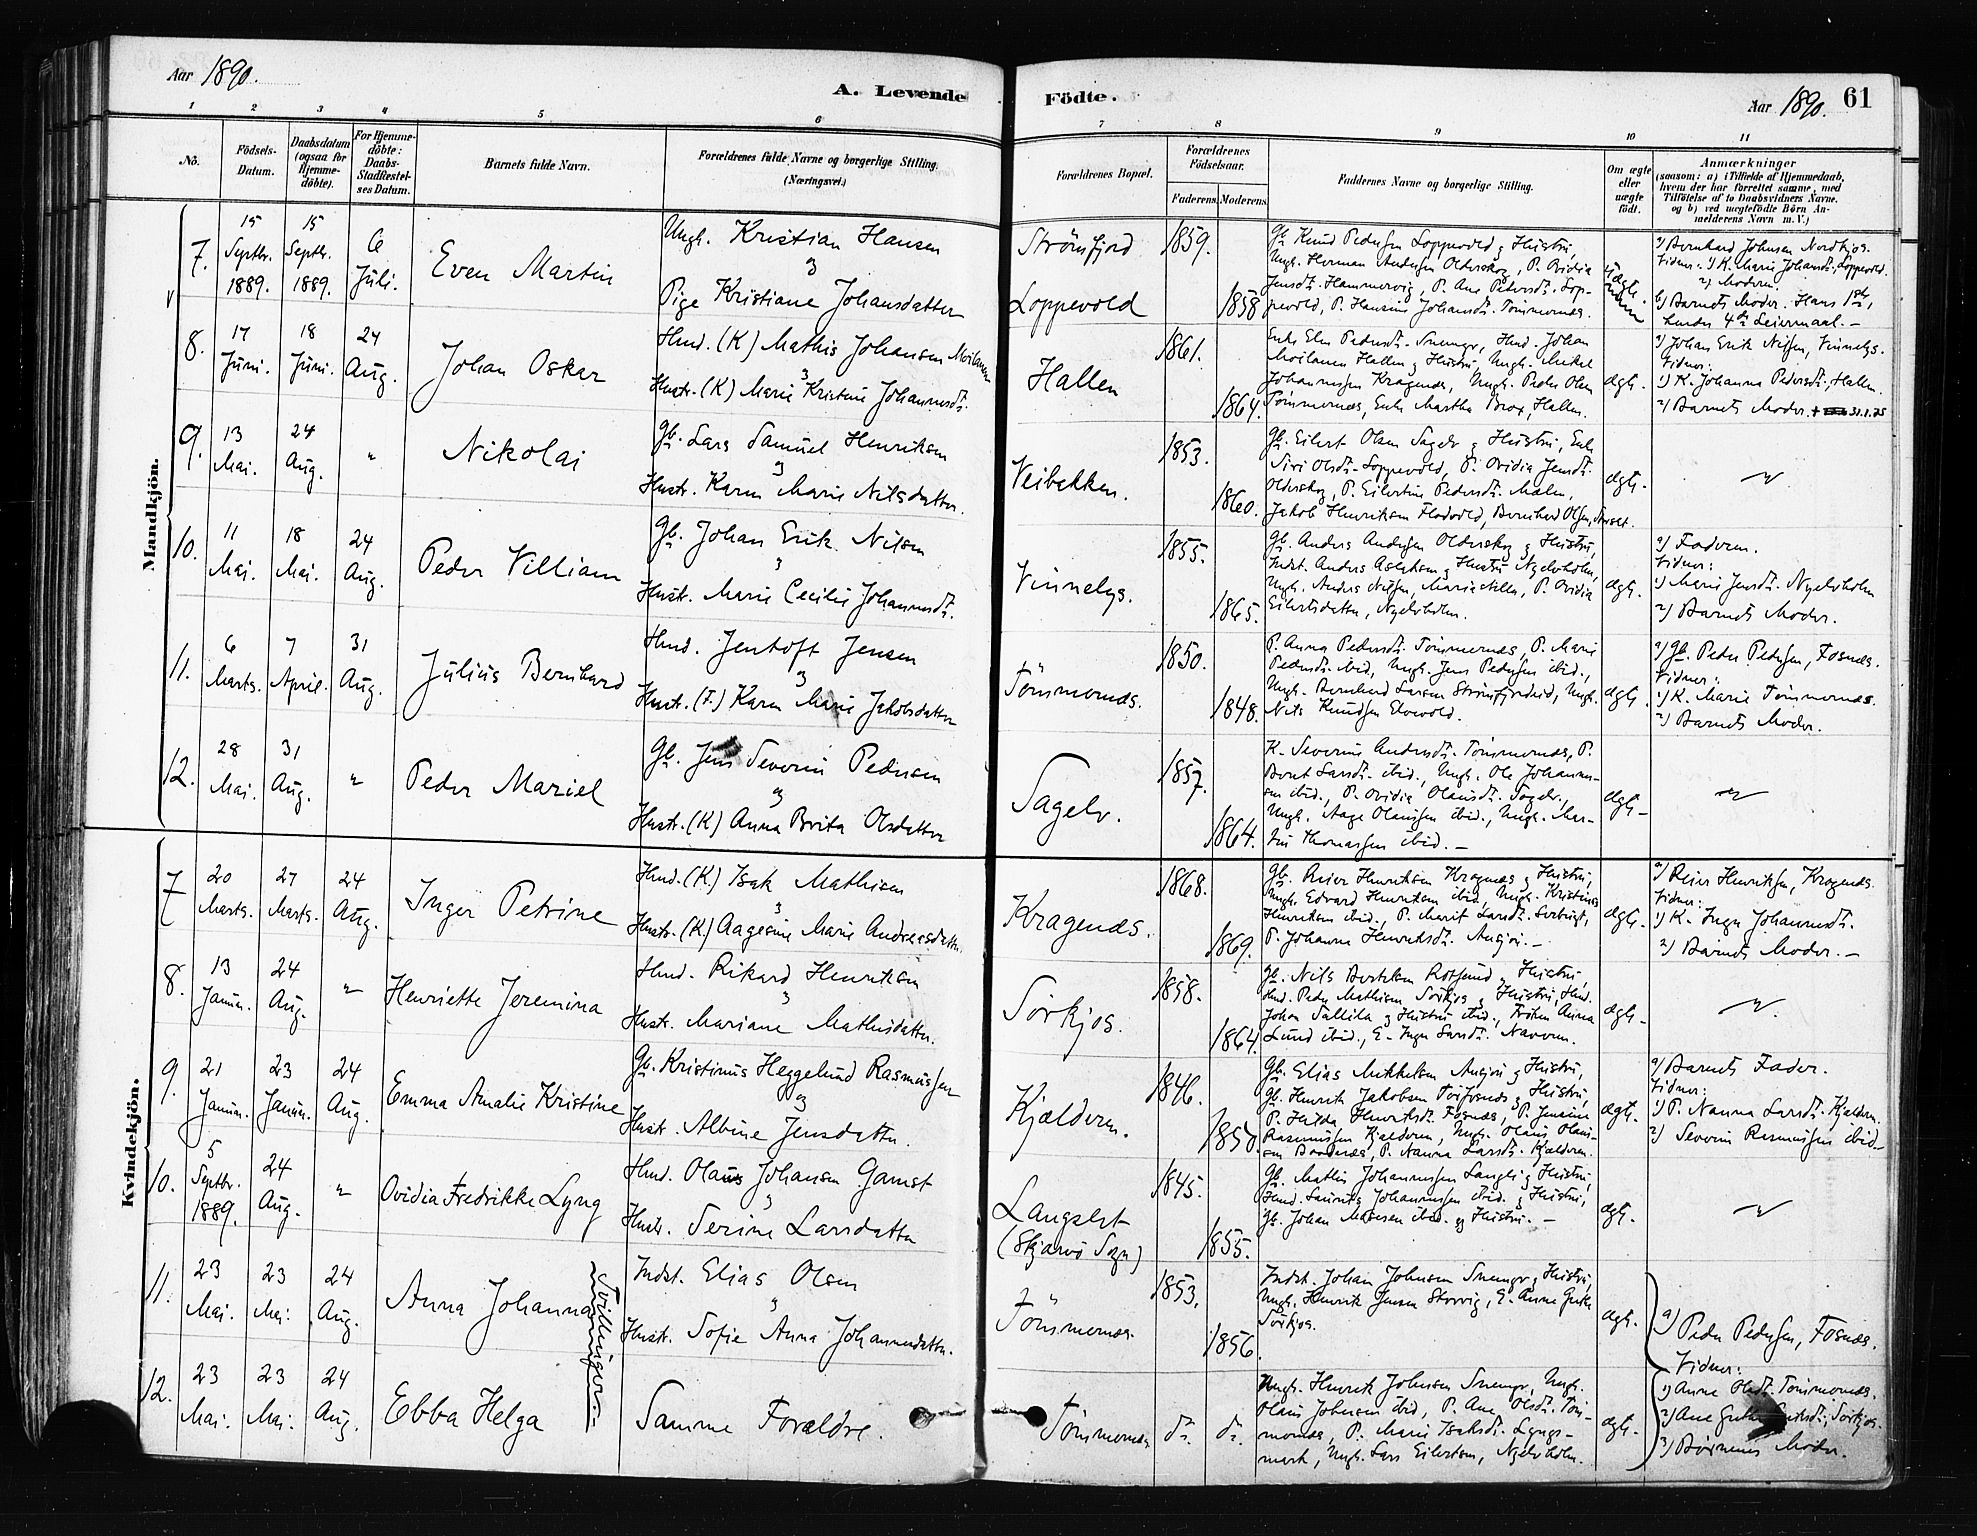 Aar 1890.
A. Levende Födte.
Aar 1890. 61
1 2 3 4 5 6 7 8 9 10 11
No.
Födsels-Datum.
Daabsdatum (ogsaa for Hjemme-döbte).
For Hjemme-döbte: Daabs-Stadfæstel-ses Datum.
Barnets fulde Navn.
Forældrenes fulde Navne og borgerlige Stilling. (Næringsvei.)
Forældrenes Bopæl.
Forældrenes Födselsaar.
Faderens. Moderens.
Faddernes Navne og borgerlige Stilling.
Om ægte eller uægte födt.
Anmærkninger
(saasom: a) i Tilfælde af Hjemmedaab,
hvem der har forrettet samme, med
Tilföielse af to Daabsvidners Navne.
og b) ved uægtefödte Börn An-
melderens Navn m. V.)
Mandkjön.
7. 15 Septbr. 1889. 15 Septbr. 1889. 6 Juli. Even Martin
Ungk. Kristian Hansen
og
Pige Kristiane Johansdatter
Strömfjord 1859.
Loppevold 1858
Gb. Knud Pedersen Loppevold og Hustru,
Ungk. Herman Andersen Olderskog, P. Ovidia
Jensdt. Hammervig, P. Ane Petersdt. Lop-
pevold, P. Hansine Johansdt. Tömmernes.
Uægte
a) Bernhard Johnsen Nordkjos.
Vidner: 1) K. Marie Johansdt., Loppevold.
2) Modern.
b) Barnets Moder. Hans 1ste,
hendes 4de Leiermaal. -
8. 17 Juni. 18 Juni. 24 Aug. Johan Oskar
Hmd. (K) Mathis Johansen Moilanen
og
Hustr. (K) Marie Kristine Johannesdt.
Hallen 1861. 1864.
Enke Elen Pedersdt. Snemyr, Hmd. Johan
Moilanen Hallen og Hustru, Ungk. Mikel
Johannessen Kragenæs, Ungk. Peder Olsen
Tömmernæs, Enke Martha Brox, Hallen.
ægte.
a) Johan Erik Nilsen, Vinnelys.
Vidner:
1) K. Johanna Pedersdt., Hallen.
2) Barnets Moder. + 31.1.75
9. 13 Mai. 24 Aug. " Nikolai
Gb. Lars Samuel Henriksen
og
Hustr. Karen Marie Nilsdatter.
Veibakken. 1853. 1860.
Gb. Eilert Olsen Sagelv og Hustru, Enke
Siri Olsdt. Loppevold, P. Ovidia Jensdt.
Olderskog, P. Eilertine Pedersdt. Malen,
Jakob Henriksen Flodvold, Bernhard Olsen,
ægte.
10. 11 Mai. 18 Mai. 24 Aug. Peder Villiam
Gb. Johan Erik Nilsen
og
Hustr. Marie Cecilie Johannesdt.
Vinnelys. 1855. 1865.
Gb. Anders Andersen Olderskog og Hustru,
Indst. Anders Aslaksen og Hustru Nyelvholm,
Ungk. Anders Nilsen, Marie Nilsen, P. Ovidia
Eilertsdatter, Nyelvholm.
ægte.
a) Faderen.
Vidner:
1) Marie Jensdt. Nyelvholm
2) Barnets Moder.
11. 6 Marts. 7 April. 31 Aug. Julius Bernhard
Hmd. Jentoft Jensen
og
Hustr. (F.) Karen Marie Jakobsdatter
Tömmernæs. 1850. 1848.
P. Anna Pedersdt. Tömmernæs, P. Marie
Pedersdt. ibid, Ungk. Jens Pedersen ibid.,
Ungk. Bernhard Larsen Strömfjordeid, Ungk.
Nils Knudsen Elvevold.
ægte.
a) Gb. Peder Pedersen, Fosnæs.
Vidner:
1) K. Marie Tömmernæs.
2) Barnets Moder.
12. 28 Mai. 31 Aug. " Peder Mariel
Gb. Jens Severin Pedersen
og
Hustr. (K) Anna Brita Olsdatter
Sagelv. 1857. 1864.
K. Severine Andersdt. Tömmernæs, P.
Berit Larsdt. ibid., Ungk. Ole Johannes-
sen ibid., P. Ovidia Olausdt. Sagelv,
Ungk. Aage Olaussen ibid., Ungk. Mar-
tin Thomassen ibid. -
ægte
Kvindekjön.
7 20 Marts. 27 Marts. 24 Aug. Inger Petrine
Hmd. (K.) Isak Mathisen
og
Hustr. (K.) Aagesine Marie Andreasdatter.
Kragenæs. 1868. 1869.
Gb. Reier Henriksen Kragenæs og Hustru,
Ungk. Edvard Henriksen ibid, Ungk. Kristines
Henriksen ibid., P. Marit Larsdt. Sorbugt,
P. Johanna Henriksdt. Ansjøn. -
ægte.
a) Reier Henriksen, Kragenæs.
Vidner:
1) K. Inger Johannesdt.
2) Barnets Moder. -
8. 13 Januar. 24 Aug. " Henriette Jeremina
Hmd. Rikard Henriksen
og
Hustr. Mariane Mathisdatter.
Sörkjos. 1858. 1864.
Gb. Nils Bertelsen Rotsund og Hustru,
Hmd. Peder Mathisen Sörkjos og Hustru, Hmd.
Johan Sallila og Hustru ibid., Fröken Anna
Lund ibid., E. Inger Larsdt. Navaren.
ægte
9. 21 Januar. 23 Januar. 24 Aug. Emma Amalie Kristine
Gb. Kristinus Heggelund Rasmussen
og
Hustr. Albine Jensdatter.
Kjælderen. 1846. 1850.
Gb. Elias Mikkelsen Ansjøn og Hustru,
Gb. Henrik Jakobsen Torfosnæs og Hustru,
P. Hulda Henriksdt. Fosnæs, P. Jensine
Rasmussen Kjælderen, Ungk. Olaus Olaus-
sen Baatnæs, P. Nanna Larsdt. Kjælderen.
ægte.
a) Barnets Fader.
Vidner:
1) P. Nanna Larsdt. Kjælderen.
2) Severin Rasmussen ibid.
10. 5 Septbr. 1889. 24 Aug. " Ovidia Fredrikke Lyng
Hmd. Olaus Johansen Gamst
og
Hustr. Serine Larsdatter
Langslet
(Skjærvö Sogn)
1845. 1855.
Gb. Mathis Johannessen Langslet og Hustru,
Hmd. Laurits Johannessen ibid. og Hustru,
Gb. Johan Mathisen ibid. og Hustru. -
ægte.
11. 23 Mai. 23 Mai. 24 Aug. Anna Johanna
Tvillinger
Indst. Elias Olsen
og
Hustr. Sofie Anna Johannesdatter.
Tömmernæs 1853. 1856.
Indst. Johan Johnsen Snemyr og Hustru,
Ungk. Henrik Jensen Storvig, E. Anne Grete
Sörkjos.
ægte.
a) Peder Pedersen, Fosnæs.
Vidner:
1) Anne Olsdt. Tömmernæs.
2) Ane Grethe Eriksdt., Sörkjos.
3) Börnenes Moder.
12. 23 Mai. 23 Mai. 24 Aug. Ebba Helga
Samme Forældre.
Tömmernæs do. do.
Ungk. Henrik Johnsen Snemyr, Ungk.
Olaus Johnsen ibid, P. Ane Olsdt. Töm-
mernæs, P. Marie Isaksdt. Lyngs-
mark, Ungk. Lars Eilertsen, Nyelvholm.
ægte.